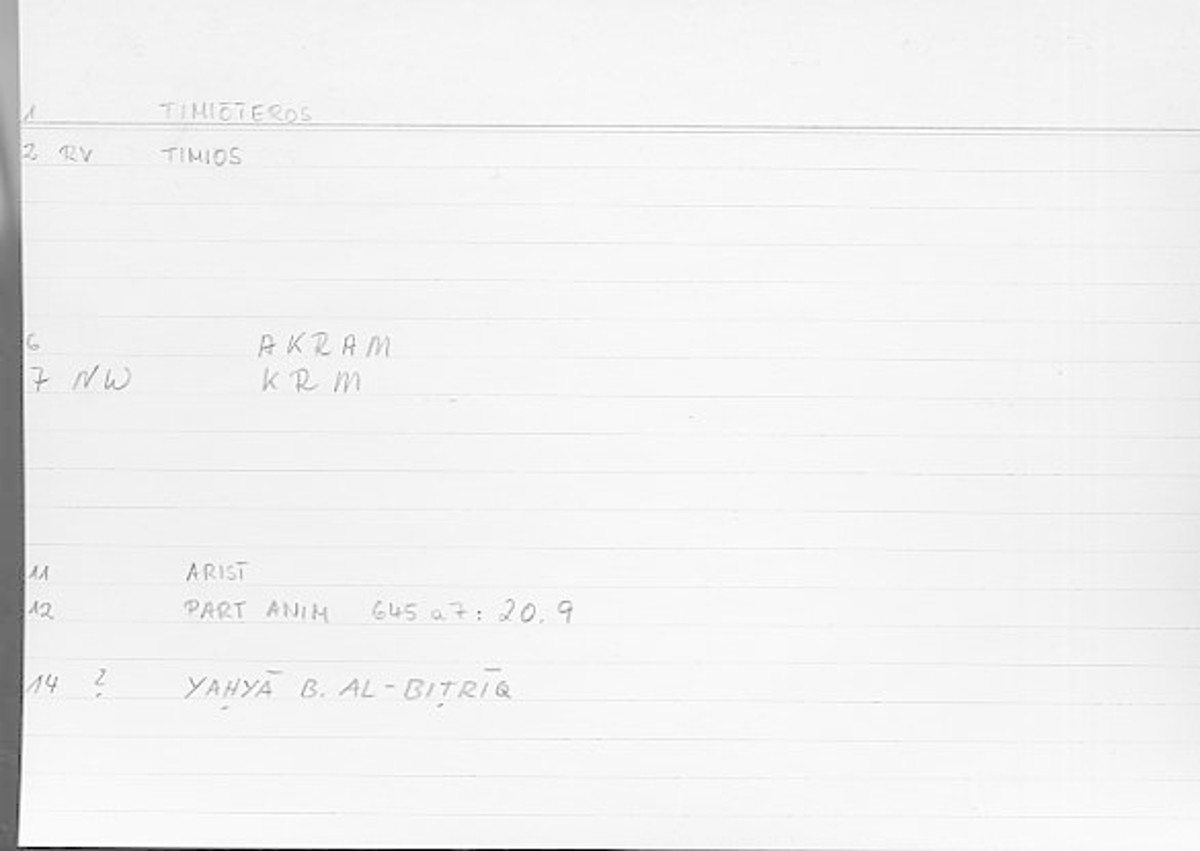 1 TIMIŌTEROS
2 RV TIMIOS
6 AKRAM
7 NW KRM
11 ARIST
12 PART ANIM 645 a 7: 20.9
14 ? YAḤYĀ B. AL-BIṬRĪQ